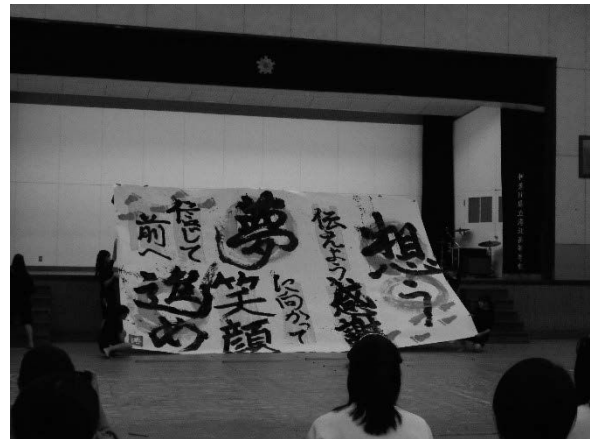 想う
伝えよう感謝
夢に向かって
笑顔
信じて
前へ
進め